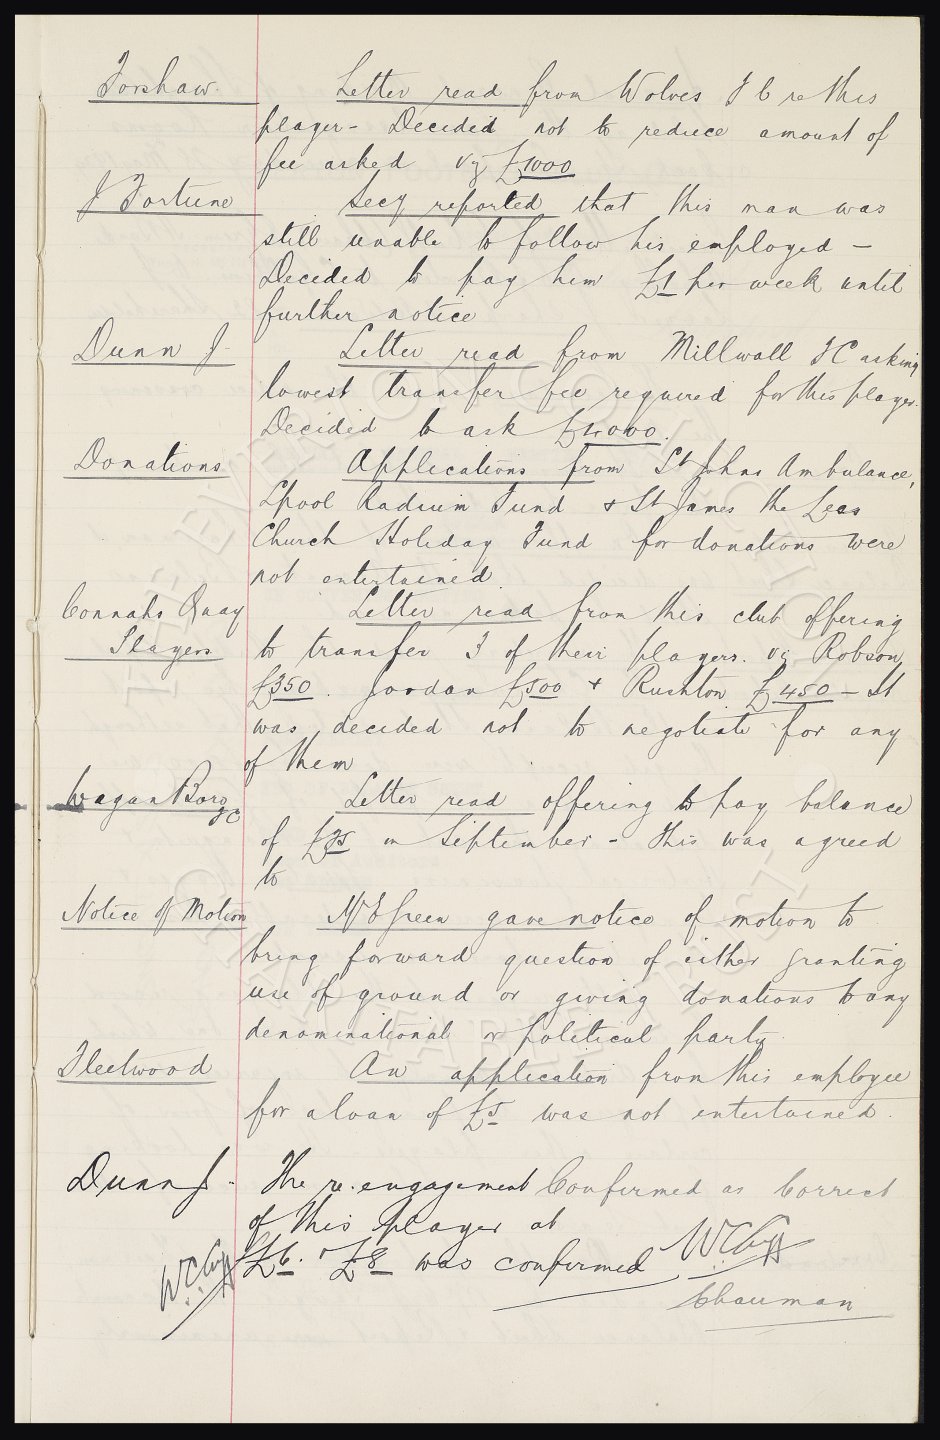 Forshaw. Letter read from Wolves F C re this
player - Decided not to reduce amount of
fee asked viz £1000
J Fortune Secy reported that this man was
still unable to follow his employed -
Decided to pay him £1 per week until
further notice
Dunn J. Letter read from Millwall F C asking
lowest transfer fee required for this player.
Decided to ask £4000.
Donations Applications from St Johns Ambulance,
Lpool Radium Fund & St James the Less
Church Holiday Fund for donations were
not entertained
Connahs Quay Letter read from this club offering
Players to transfer 3 of their players. viz Robson
£350. Jordan £500 & Rushton £450 - It
was decided not to negotiate for any
of them
Wagan Boro Letter read offering to pay balance
FC of £75 in September - this was agreed
to
Notice of Motion Mr E Green gave notice of motion to
bring forward question of either granting
use of ground or giving donations to any
denominational or political party.
Fleetwood An application from this employee
for a loan of £5 was not entertained.
Dunn J. The re.engagement Confirmed as Correct
of this player at
£6. £8 was confirmed
Chairman